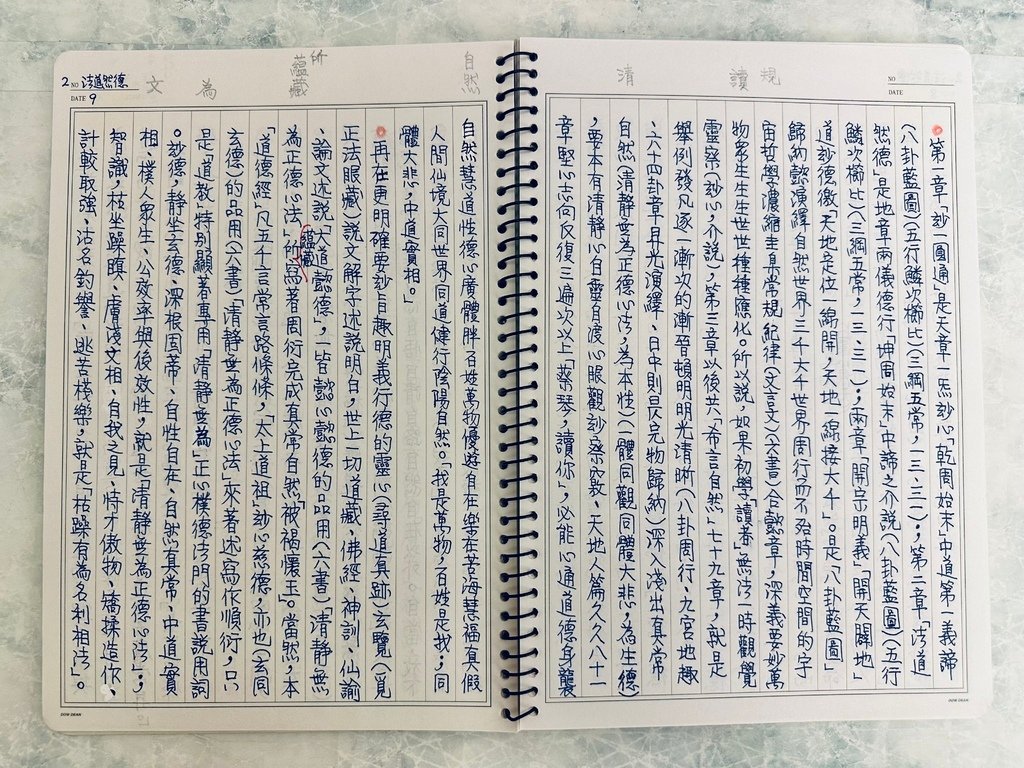 規 讀 清
NO
DATE
第一章「玅一圓通」是大章一炁玅心「乾周始末」中道第一義諦
(八卦藍圖)(五行鱗次櫛比)(三綱五常,一三、三一);第二章「法道
然德」是地章兩儀德行「坤周始末」中諦之介說(八卦藍圖)(五行
鱗次櫛比)(三綱五常,一三、三一);兩章「開宗明義」「開天闢地」
道玅德徼「天地定位一線開,天地一線接大千」。是「八卦藍圖」
歸納懿演繹自然世界三千大千世界周行而不殆時間空間的宇
宙哲學濃縮圭臬常規紀律(文言文)(六書)合懿章,深義要妙萬
物眾生生生世世種種應化。所以說,如果初學「讀者」無法一時觀覺
靈察(玅心,介說),第三章以後共「希言自然」七十九章,就是
舉例發凡逐一漸次的漸晉頓明明光清晰(八卦周行、九宮地趣
、六十四卦章昇光演繹、日中則昃完物歸納)深入淺出有真常
自然(清靜無為正德心法,為本性)一體同觀同體大悲,為生德
,要本有清靜心自靈自渡心眼觀玅察窮教、天地人篇久久八十一
章堅心志向反復三遍次以上「蔡琴,讀你」,必能心通道德身襲
自然 所 蘊藏 為 文
2 NO 法道然德
DATE 9
自然慧道性德心廣體胖百姓萬物優遊自在樂在苦海慧福真假
人間仙境大同世界同道健行陰陽自然。「我是萬物,百姓是我;同
體大悲,中道實相。」
再在更明確要玅旨趣明義行德的靈心(尋道真跡)玄覽(覓
正法眼藏)說文解字述說明白,世上一切道藏、佛經、神訓、仙諭
、論文述說「大道懿德」,一皆懿心懿德的品用(六書)「清靜無
為正德心法」所蘊藏寫著周衍完成真常自然「被褐懷玉。當然,本
「道德經」凡五千言常言路條條,「太上道祖」玅心慈德,亦也(玄同
玄德)的品用(六書)「清靜無為正德心法」來著述寫作順衍,只
是「道教」特別顯著專用「清靜無為」正心樸德法門的書說用詞
。玅德,靜坐玄德、深根固蒂、自性自在、自然真常、中道實
相,樸人眾生、公效率與後效性,就是「清靜無為正德心法」;
智識,枯坐躁瞑、膚淺文相、自我之見、恃才傲物、矯揉造作、
計較取強、沽名釣譽、逃苦棧樂,就是「枯躁有為名利相法」。
DOW DRAN
DOW DRAN